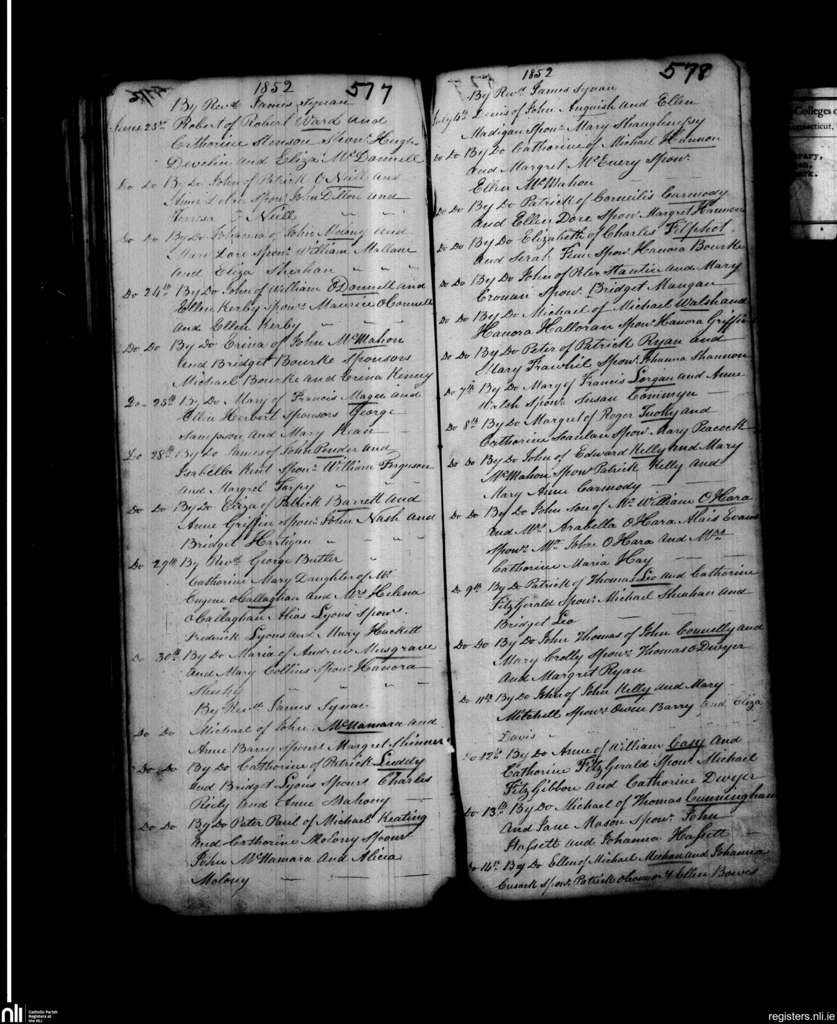 1852 577
By Revd James Synan
June 23rd Robert of Robert Ward and
Catherine Stenson Sponrs Hugh
Develin and Eliza McDonnell
Do Do By Do John of Patrick O Neill and
Anne Sponrs John Dillon and
O Neill
Do Do By Do Johanna of John and
Mary Dore Sponrs William Mallane
and Eliza Sheehan
Do 24th By Do John of William ODonnell and
Ellen Kerby Sponrs Maurice OConnell
and Ellen Kerby
Do Do By Do Crina of John McMahon
and Bridget Bourke Sponsors
Michael Bourke and Crina Kenny
Do 25th By Do Mary of Francis Magee and
Ellen Herbert Sponsors George
Sampson and Mary Kean
Do 28th By Do James of John Ponder and
Isabella Kent Sponrs William Ferguson
and Margret Tarpy
Do Do By Do Eliza of Patrick Barrett and
Anne Griffin Sponrs John Nash and
Bridget Hartigan
Do 29th By Revd George Butler
Catherine Mary Daughter of Mr
Eugene OCallaghan and Mrs Helena
OCallaghan Alias Lyons Sponrs
Frederick Lyons and Mary Hackett
Do 30th By Do Maria of Andrew Musgrave
and Mary Collins Sponr Hanora
Sheehy
By Revd James Synan
Do Do Michael of John McNamara and
Anne Barry Sponrs Margret Skinner
Do Do By Do Catherine of Patrick Liddy
and Bridget Lyons Sponrs Charles
Reily and Anne Mahony
Do Do By Do Peter Paul of Michael Keating
and Catherine Molony Sponrs
John McNamara and Alicia
Molony
1852 578
By Revd James Synan
July 4th Denis of John Anguish and Ellen
Madigan Sponr Mary Shaughnesy
Do Do By Do Catherine of Michael Hannon
and Margret McEnery Sponr
Ellen McMahon
Do Do By Do Patrick of Cornelis Carmody
and Ellen Dore Sponr Margret Hannon
Do Do By Do Elizabeth of Charles Filphot
and Sarah Sponr Hanora Bourke
Do Do By Do John of Peter Stanton and Mary
Cronan Sponr Bridget Mangan
Do Do By Do Michael of Michael Walsh and
Hanora Halloran Sponr Hanora Griffin
Do Do By Do Peter of Patrick Ryan and
Mary Frawhil Sponr Johanna Shannon
Do 7th By Do Mary of Francis Lorgan and Anne
Walsh Sponr Susan Commyn
Do 8th By Do Margret of Roger Tuohy and
Catherine Scanlan Sponr Mary Peacock
Do Do By Do John of Edward Kelly and Mary
McMahon Sponrs Patrick Kelly and
Mary Anne Carmody
Do Do By Do John Son of Mr William O Hara
and Mrs Arabella O Hara Alais Evans
Sponrs Mr John O Hara and Mrs
Catherine Maria Hay
Do 9th By Do Patrick of Thomas Leo and Catherine
FitzGerald Sponrs Michael Sheahan and
Bridget Leo
Do Do By Do John Thomas of John Connelly and
Mary Crolly Sponrs Thomas O Dwyer
and Margret Ryan
Do 11th By Do John of John Kelly and Mary
Mitchell Sponrs Owen Barry and Eliza
Davis
Do 12th By Do Anne of William Casy and
Catherine FitzGerald Sponr Michael
FitzGibbon and Catherine Dwyer
Do 13th By Do Michael of Thomas Cunningham
and Jane Mason Sponr John
Hassett and Johanna Hassett
Do 14th By Do Ellen of Michael Meehan and Johanna
Cusack Sponr Patrick OConnor & Ellen Bowes
Colleges o
onnecticut,
rary,
nli
Catholic Parish
Registers at
the NLI
registers.nli.ie